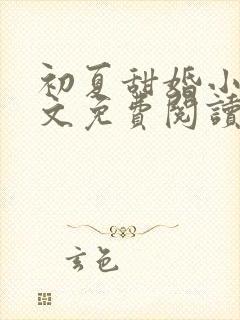 初夏甜婚小
文免費閱讀
玄色